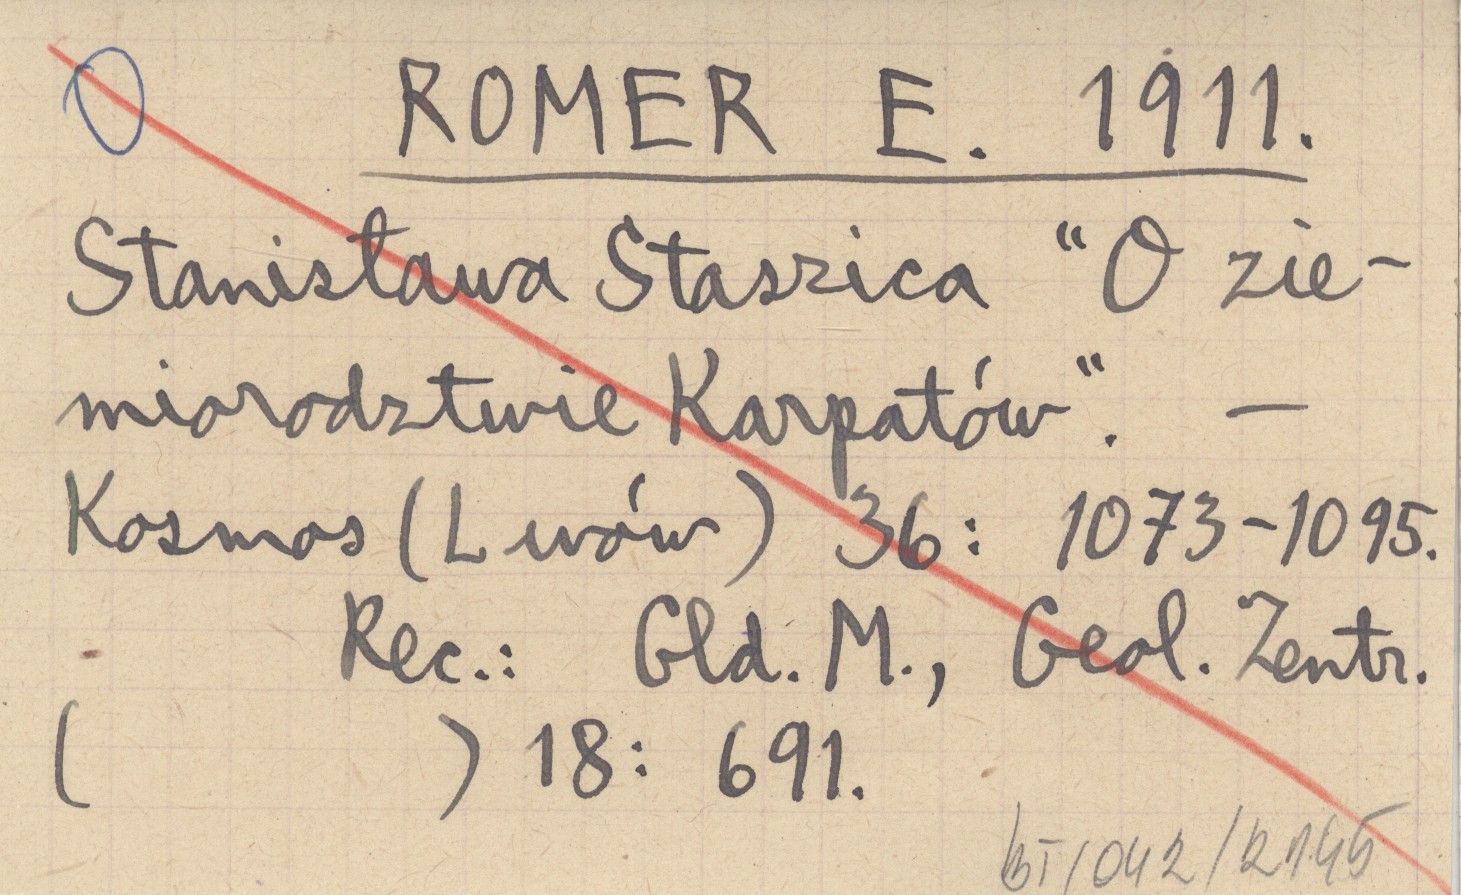 ROMER E. 1911.
Stanisława Staszica "O zie-
miorodztwie Karpatów". —
Kosmos (Lwów) 36: 1073-1095.
Rec.: Gld. M., Geol. Zentr.
( ) 18: 691.